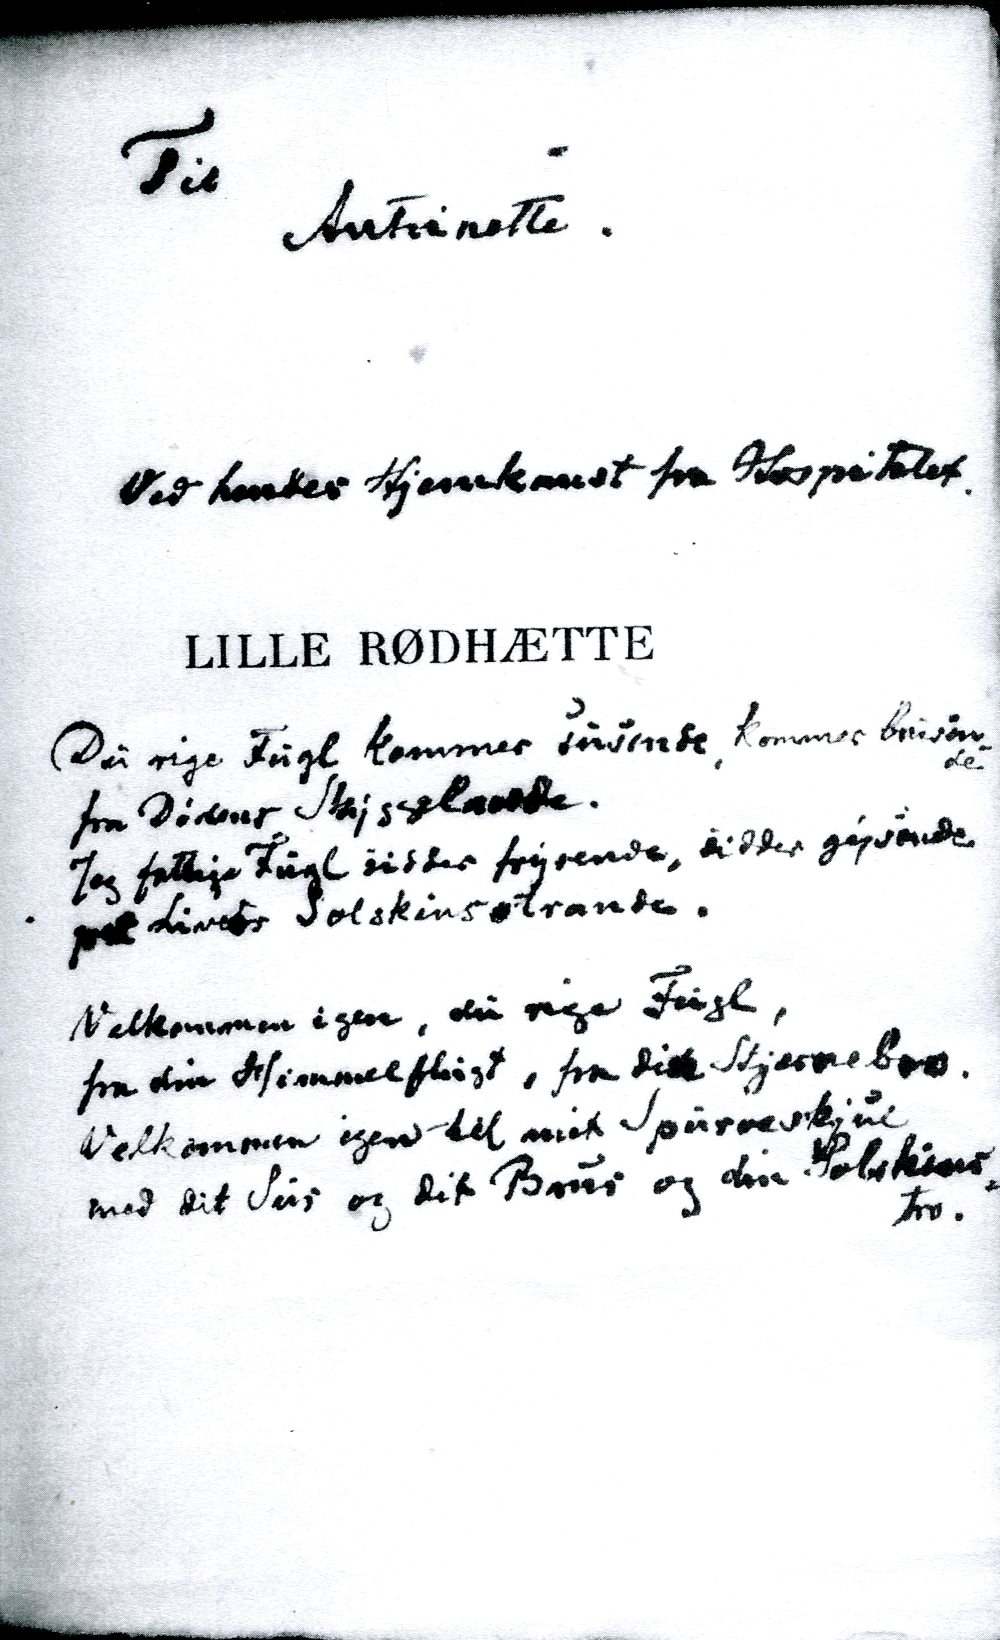 Til
Antoinette.
Ved hendes Hjemkomst fra Hospitalet.
LILLE RØDHÆTTE
Du rige Fugl kommer susende, kommer brusen-
de
fra Dødens Skyggelande.
Jeg fattige Fugl sidder frysende, sidder gysende
paa Livets Solskinsstrande.
Velkommen igen, du rige Fugl,
fra din Himmelflugt, fra din Stjernebro.
Velkommen igen til mit Spurveskjul
med dit Sus og dit Brus og din Solskins-
tro.